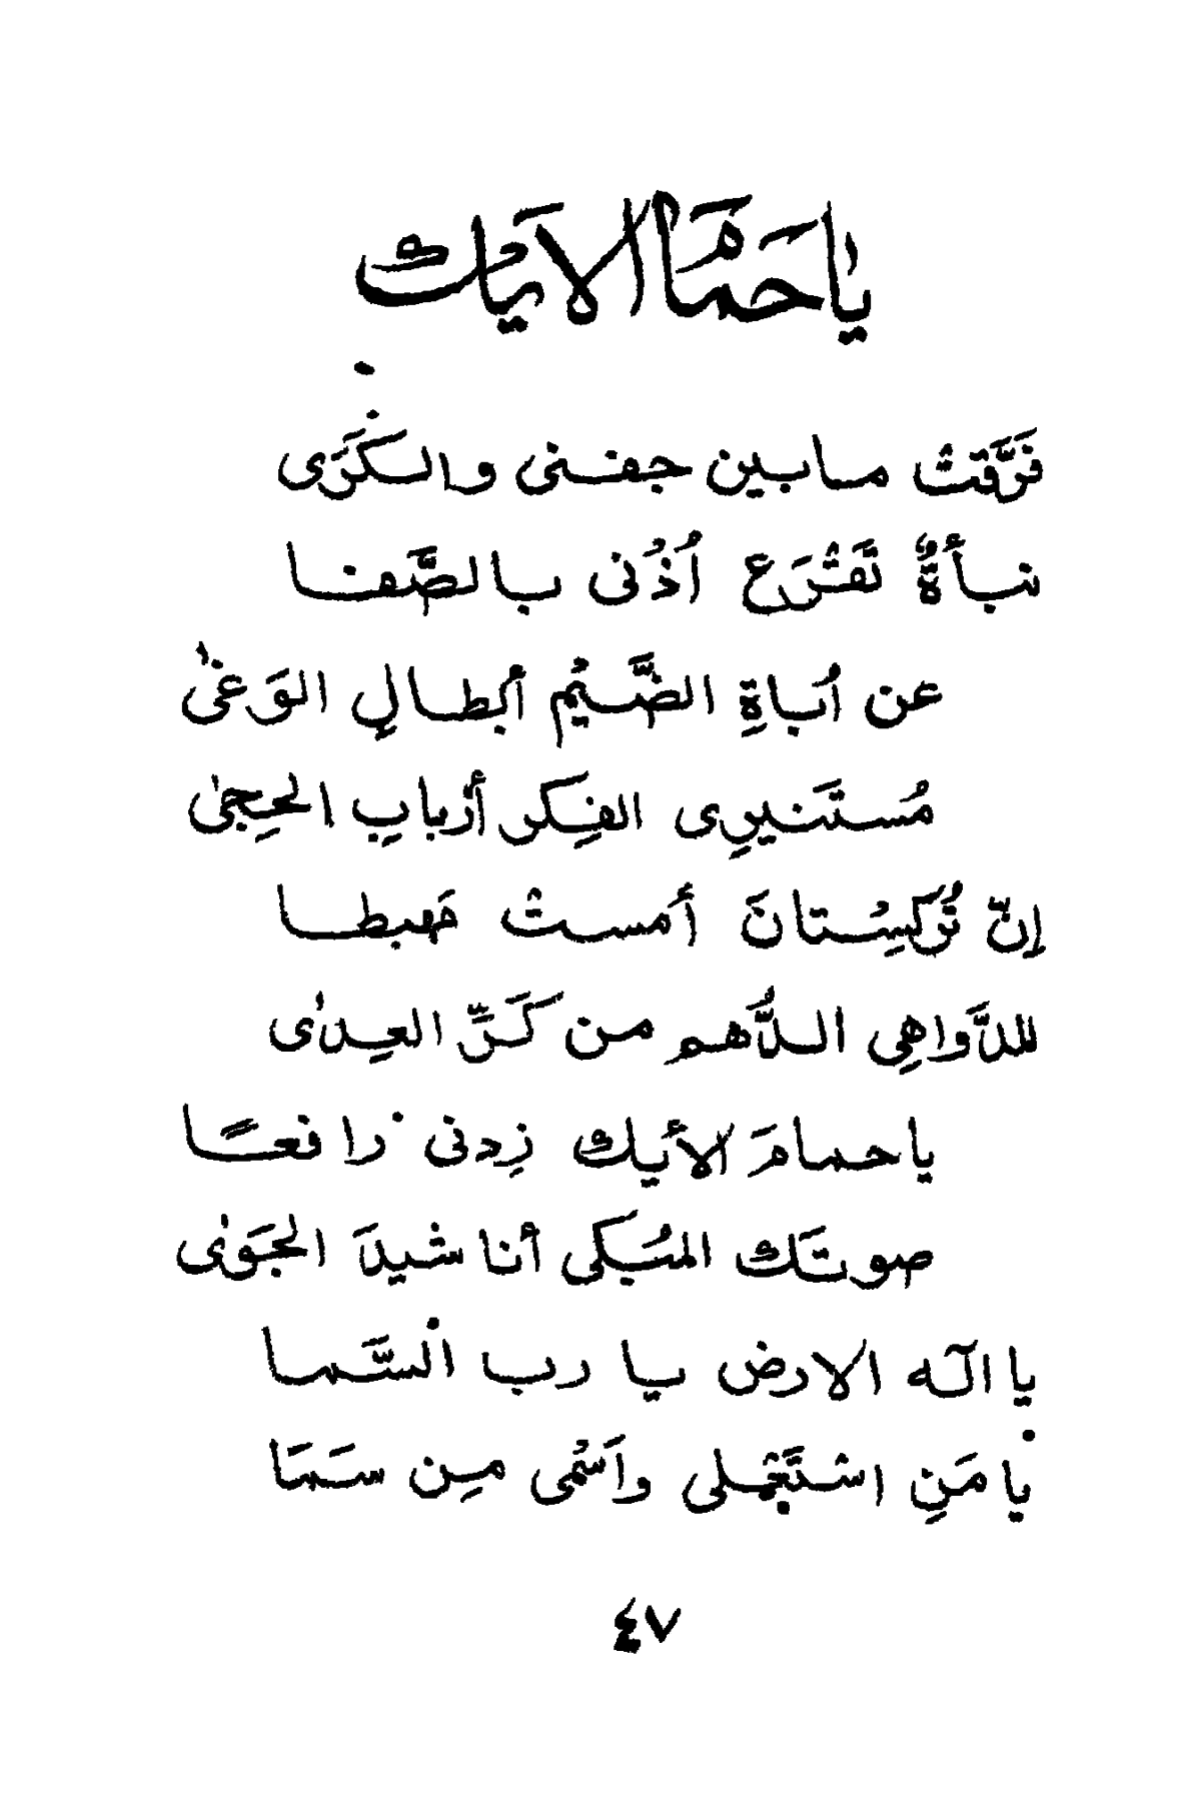 يا حمام الأيك
فَرَّقَتْ ما بين جفنى والكَرَى
نبأةٌ تَقْرَع أُذُنى بالصَّفا
عن اُباةِ الضَّيْمِ أبطالِ الوَغىٰ
مُستَنيرِى الفِكر أرْبابِ الحِجىٰ
إنّ تُركِسْتانَ أمستْ مَهبطا
للدَّواهِى الدُّهم من كَرِّ العِدٰى
يا حمامَ الأيك زِدنى رافعًا
صوتَك المُبكى أناشيدَ الجَوٰى
يا الٓه الارض يا رب السَّما
يا مَنِ اسْتَعْلى واَسْمى مِن سَمَا
٤٧